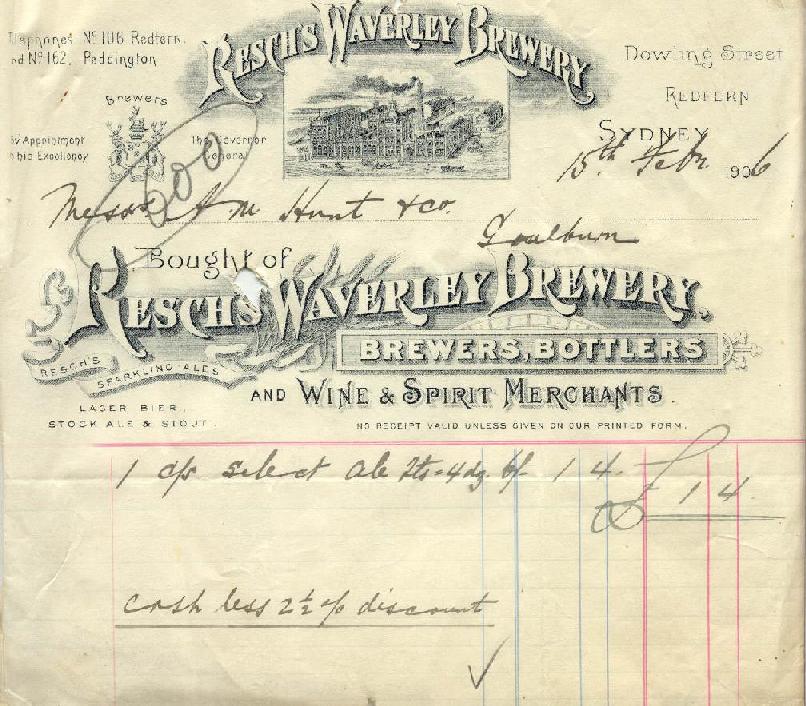 Telephones Nº 106 Redfern.
and Nº 162, Paddington
RESCH'S WAVERLEY BREWERY
Dowling Street
REDFERN
SYDNEY
Brewers
By Appointment
to his Excellency
The Governor
General
600
15th Febr 1906
Messrs A M Hunt & co.
Goulburn
Bought of
RESCH'S WAVERLEY BREWERY.
BREWERS, BOTTLERS
RESCH'S
SPARKLING ALES
AND WINE & SPIRIT MERCHANTS.
LAGER BIER,
STOCK ALE & STOUT.
NO RECEIPT VALID UNLESS GIVEN ON OUR PRINTED FORM.
1 c/s select Ale 2ts = 4dz 6/- 1 4. £ 1 4.
cash less 2½ % discount